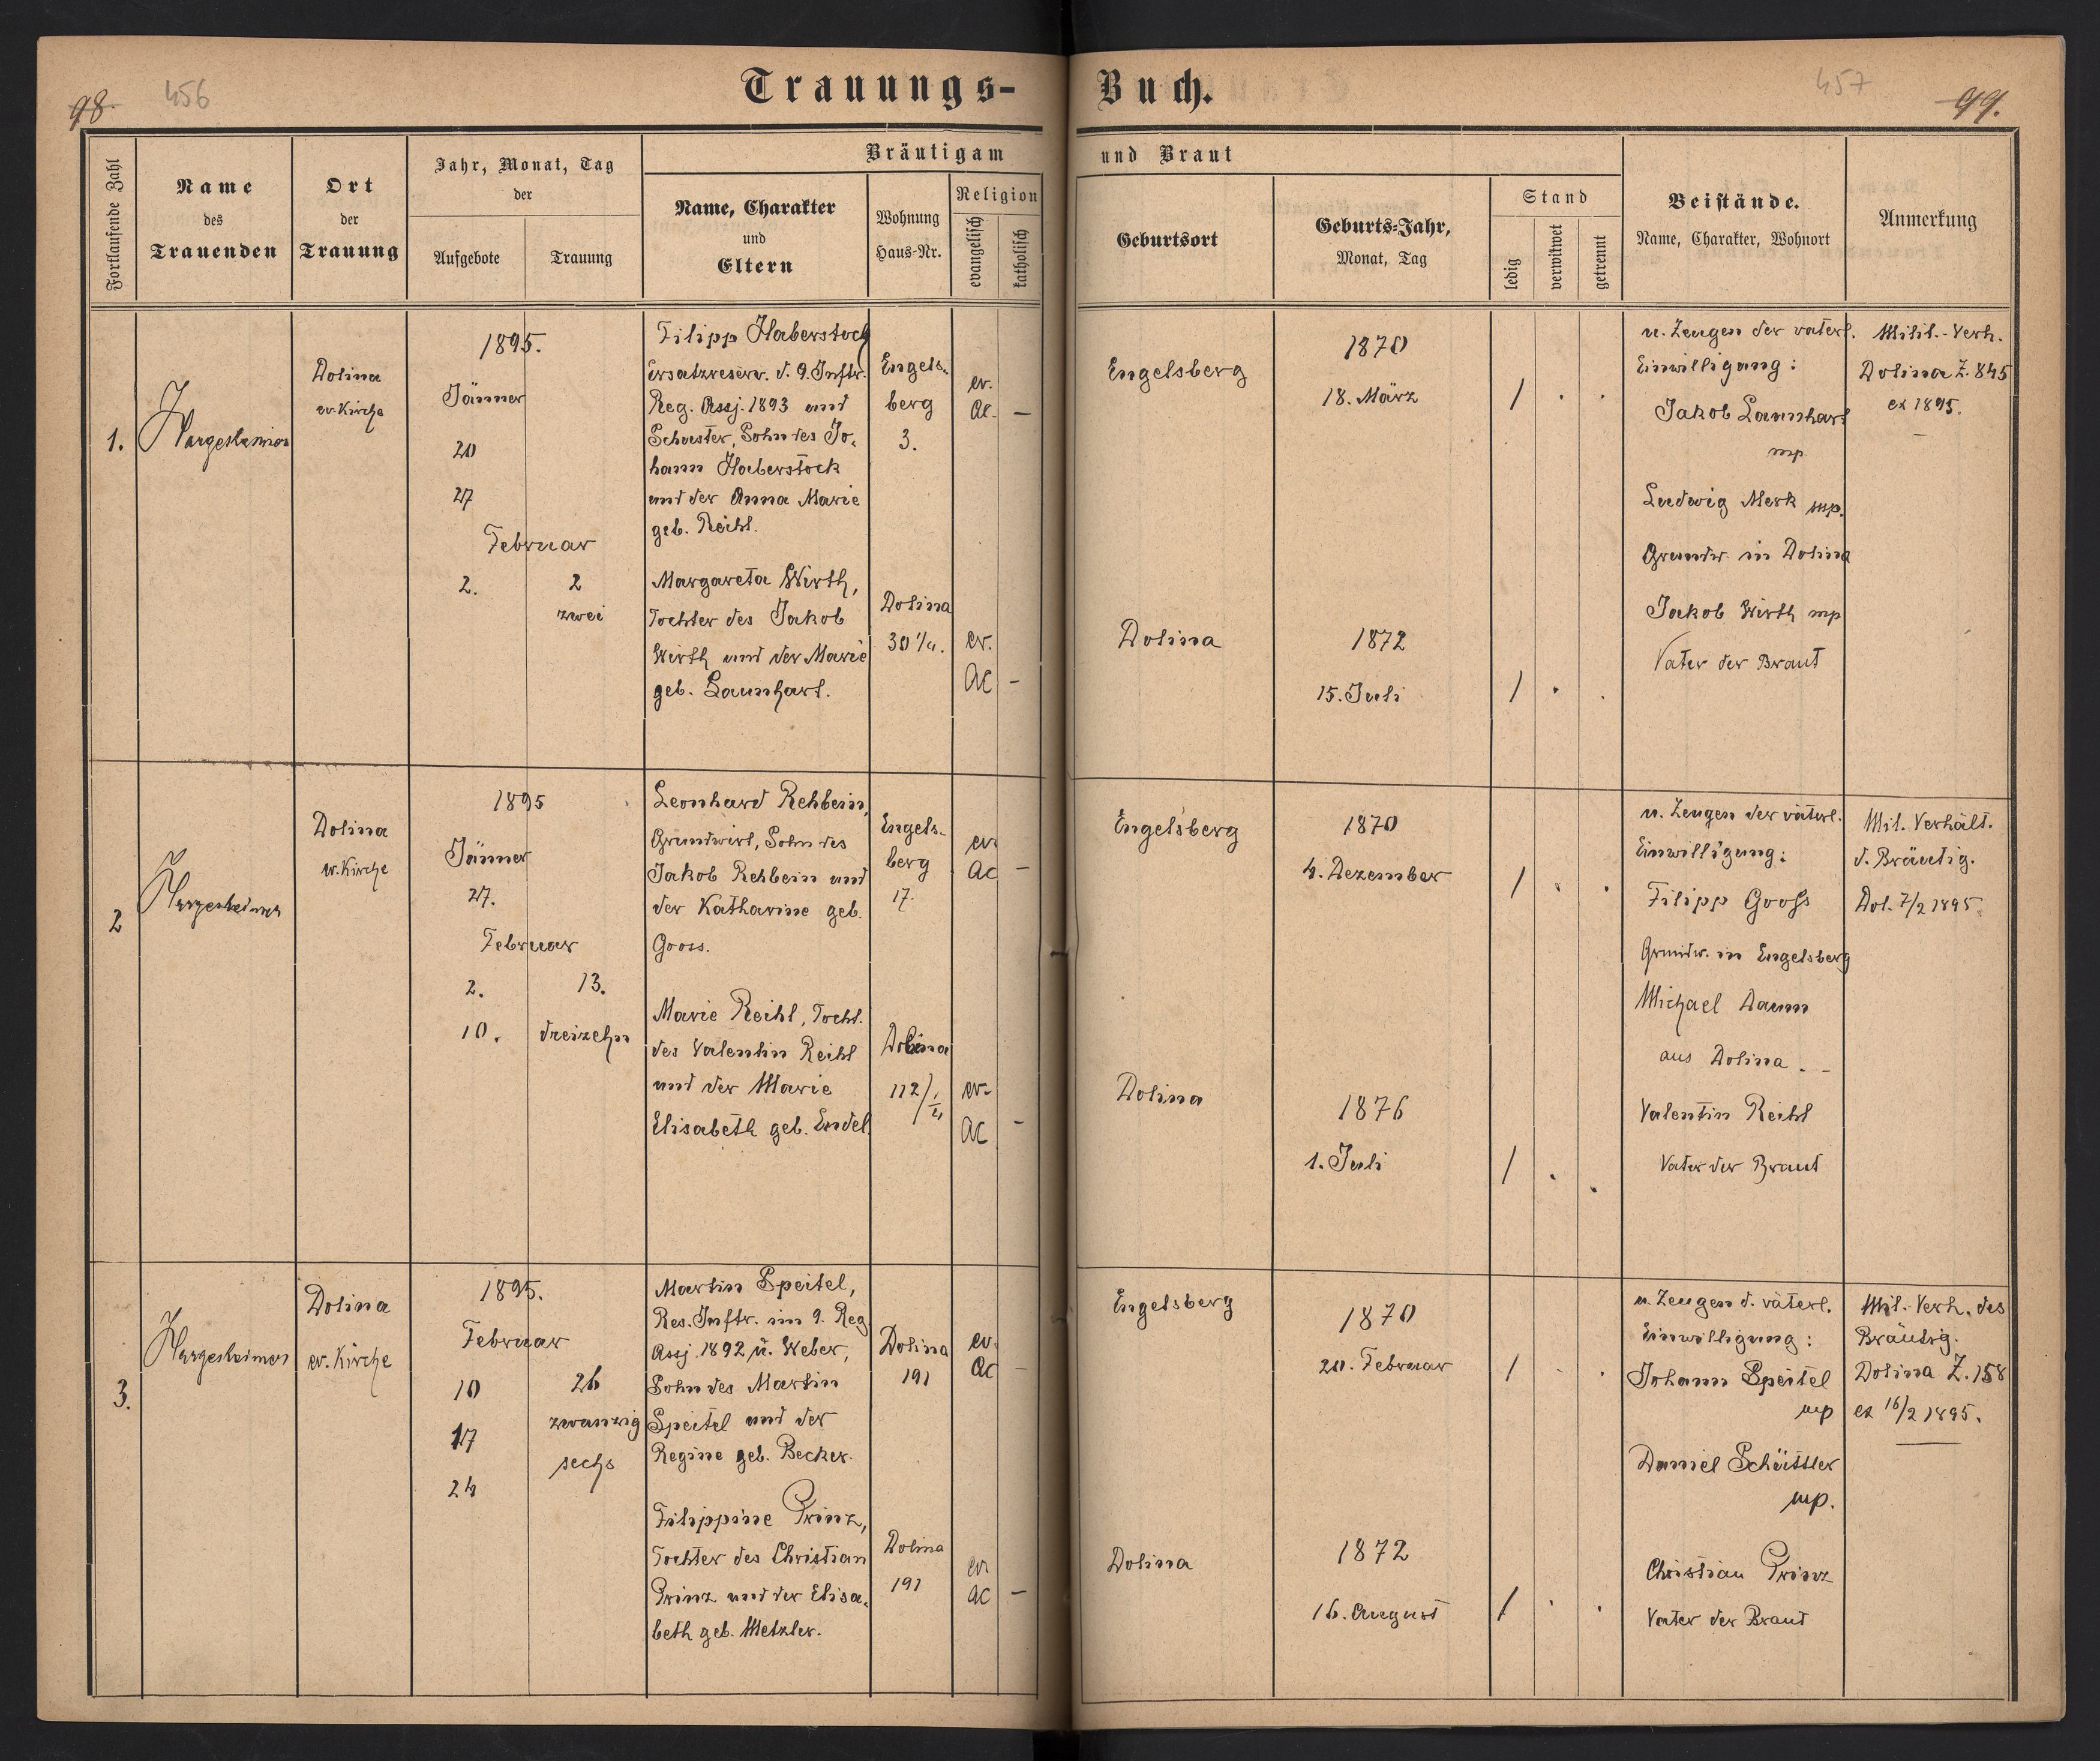 98. 456
Trauungs- Buch.
457 99.
Fortlaufende Zahl
Name
des
Trauenden
Ort
der
Trauung
Jahr, Monat, Tag
der
Aufgebote
Trauung
Bräutigam und Braut
Name, Charakter
und
Eltern
Wohnung
Haus-Nr.
Religion
evangelisch
katholisch
Geburtsort
Geburts-Jahr,
Monat, Tag
Stand
ledig
verwitwet
getrennt
Beistände.
Name, Charakter, Wohnort
Anmerkung
1.
Hargesheimer
Dolina
ev. Kirche
1895.
Jänner
20
27
Februar
2.
2
zwei
Filipp Haberstock
Ersatzreserv. d. 9. Inftr.
Reg. Assj. 1893 und
Schuster, Sohn des Jo-
hann Haberstock
und der Anna Marie
geb. Reihl.
Engels-
berg
3.
ev.
AC. –
Margareta Wirth,
Tochter des Jakob
Wirth und der Marie
geb. Launhart.
Dolina
30 1/4.
ev.
AC –
Engelsberg
1870
18. März
/ . .
Dolina
1872
15. Juli
/ . .
u. Zeugen der väterl.
Einwilligung:
Jakob Launhart
mp
Ludwig Merk mp.
Grundw. in Dolina
Jakob Wirth mp
Vater der Braut
Milit.-Verh.
Dolina Z. 845
ex 1895.
2
Hargesheimer
Dolina
ev. Kirche
1895
Jänner
27.
Februar
2.
10.
13.
dreizehn
Leonhard Rehbein,
Grundwirt, Sohn des
Jakob Rehbein und
der Katharine geb.
Gooss.
Engels-
berg
17.
ev.
AC –
Marie Reihl, Tocht.
des Valentin Reihl
und der Marie
Elisabeth geb. Endel.
Dolina
112/1/4
ev.
AC –
Engelsberg
1870
4. Dezember
/ . .
Dolina
1876
1. Juli
/ . .
u. Zeugen der väterl.
Einwilligung:
Filipp Gooss
Grundw. in Engelsberg
Michael Daum
aus Dolina. –
Valentin Reihl
Vater der Braut
Mil. Verhält.
d. Bräutig.
Dol. 7/2 1895.
3.
Hargesheimer
Dolina
ev. Kirche
1895.
Februar
10
17
24
26
zwanzig
sechs
Martin Speitel,
Res. Inftr. im 9. Reg.
Assj. 1892 u. Weber,
Sohn des Martin
Speitel und der
Regine geb. Becker.
Dolina
191
ev.
AC –
Filippine Prinz,
Tochter des Christian
Prinz und der Elisa-
beth geb. Metzler.
Dolina
191
ev
AC –
Engelsberg
1870
20. Februar
/ . .
Dolina
1872
16. August
/ . .
u. Zeugen d. väterl.
Einwilligung:
Johann Speitel
mp
Daniel Schüttler
mp.
Christian Prinz
Vater der Braut
Mil. Verh. des
Bräutig.
Dolina Z. 158
ex 16/2 1895.